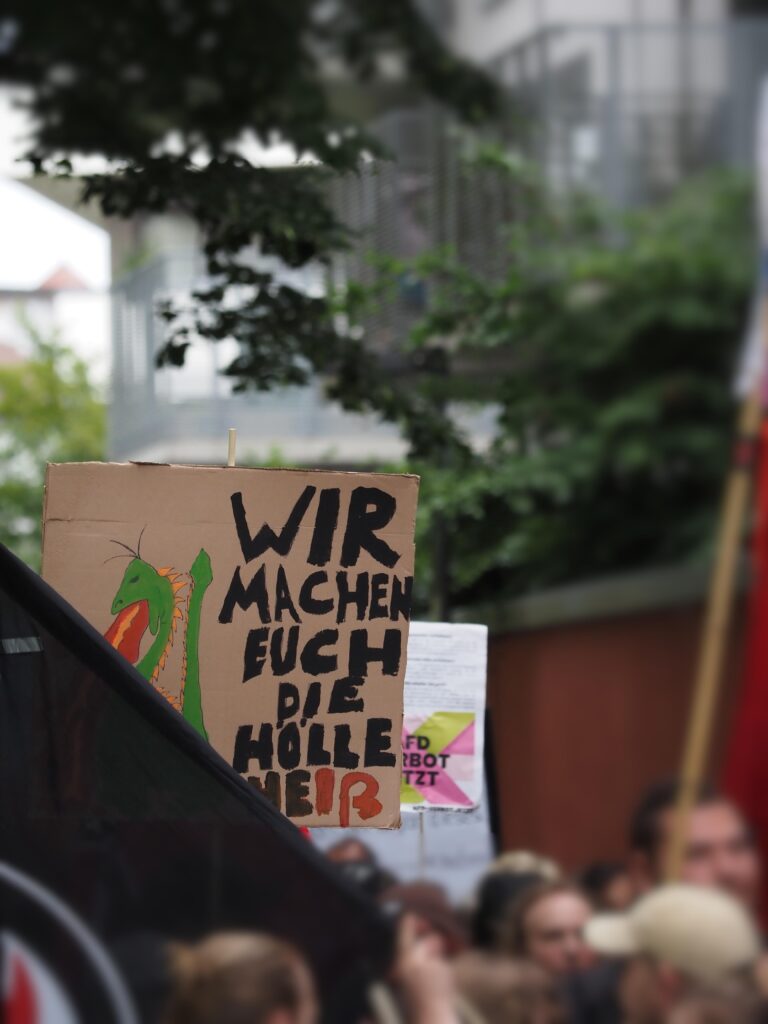 WIR
MACHEN
EUCH
DIE
HÖLLE
HEIß
AFD
RBOT
TZT